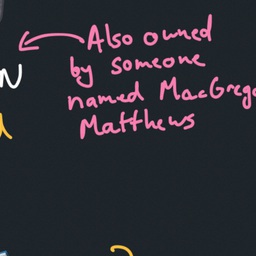 Also owned
by someone
named MacGreg
Matthews
N